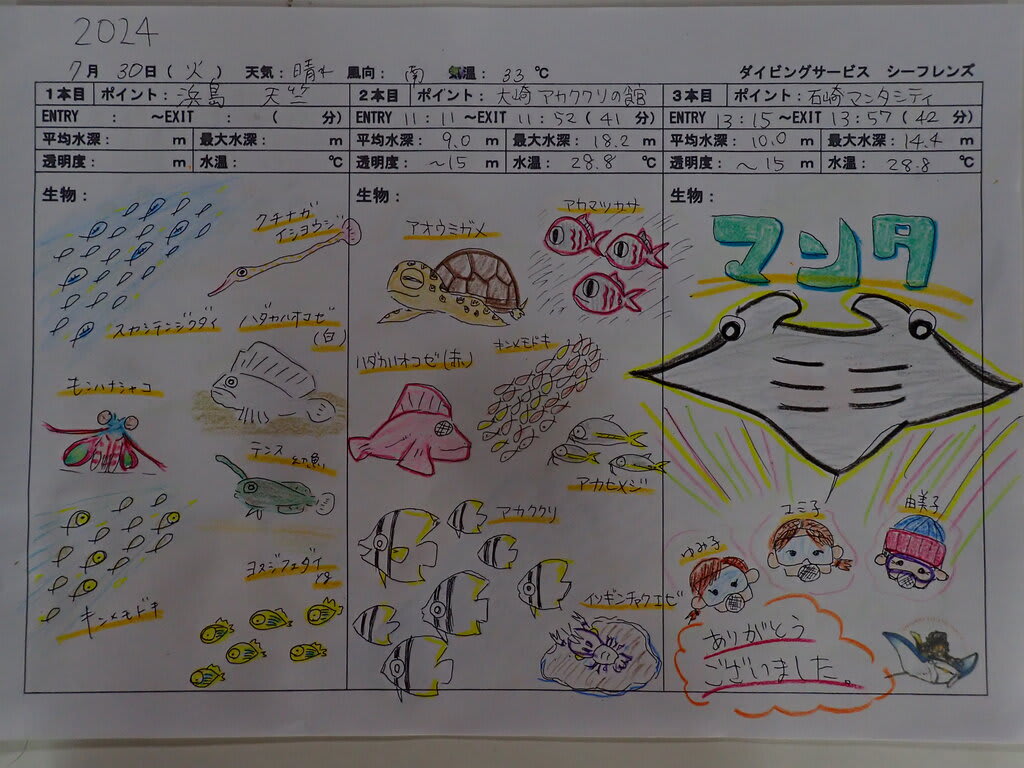 2024
7月 30日(火) 天気:晴れ 風向:南 気温:33℃ ダイビングサービス シーフレンズ
1本目 ポイント:浜島 天竺
ENTRY : ~EXIT : ( 分)
平均水深: m 最大水深: m
透明度: m 水温: ℃
生物:
クチナガ
イシヨウジ
スカシテンジクダイ
ハダカハオコゼ
(白)
モンハナシャコ
テンス 幼魚
ヨスジフエダイ
キンメモドキ
2本目 ポイント:大崎 アカククリの館
ENTRY 11:11~EXIT 11:52(41分)
平均水深:9.0m 最大水深:18.2m
透明度:~15m 水温:28.8℃
生物:
アオウミガメ
アカマツカサ
ハダカハオコゼ(赤)
キンメモドキ
アカヒメジ
アカククリ
イソギンチャクエビ
3本目 ポイント:石崎マンタシティ
ENTRY 13:15~EXIT 13:57(42分)
平均水深:10.0m 最大水深:14.4m
透明度:~15m 水温:28.8℃
生物:
マンタ
ゆみ子
ユミ子
由美子
ありがとう
ございました。